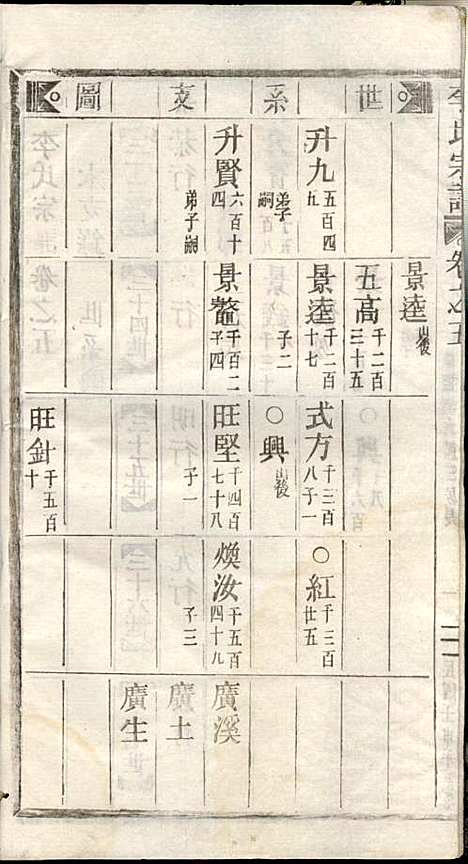 世系支圖
升九 五百四五
弟子嗣
升賢 六百十四
弟子嗣
景逵 出後
五高 千二百三十五
景逵 千二百十七
子二
景鰲 千百二子四
式方 千三百八子一
○興 出後
旺堅 千四百七十八
子一
旺針 千五百十
○紅 千三百廿五
煥汝 千五百四十九
子三
廣溪
廣土
廣生
李氏宗譜 卷之五